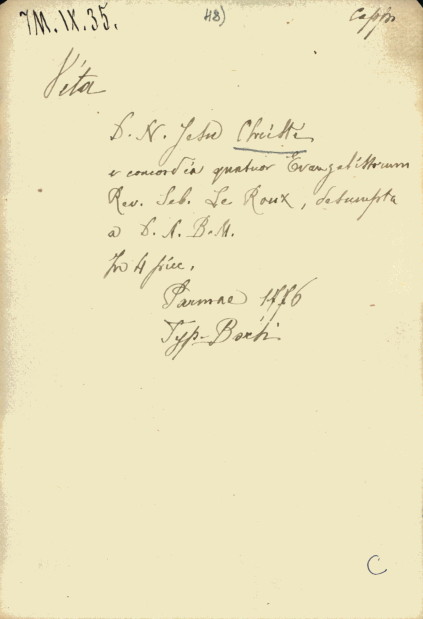 7M.IX.35.
48)
Vita
D. N. Jesu Christi
e concordia quatuor Evangelistarum
Rev. Seb. Le Roux, desumpta
a D. A. B. M.
In 4 picc.
Parmae 1776
Typ. Borsi
C